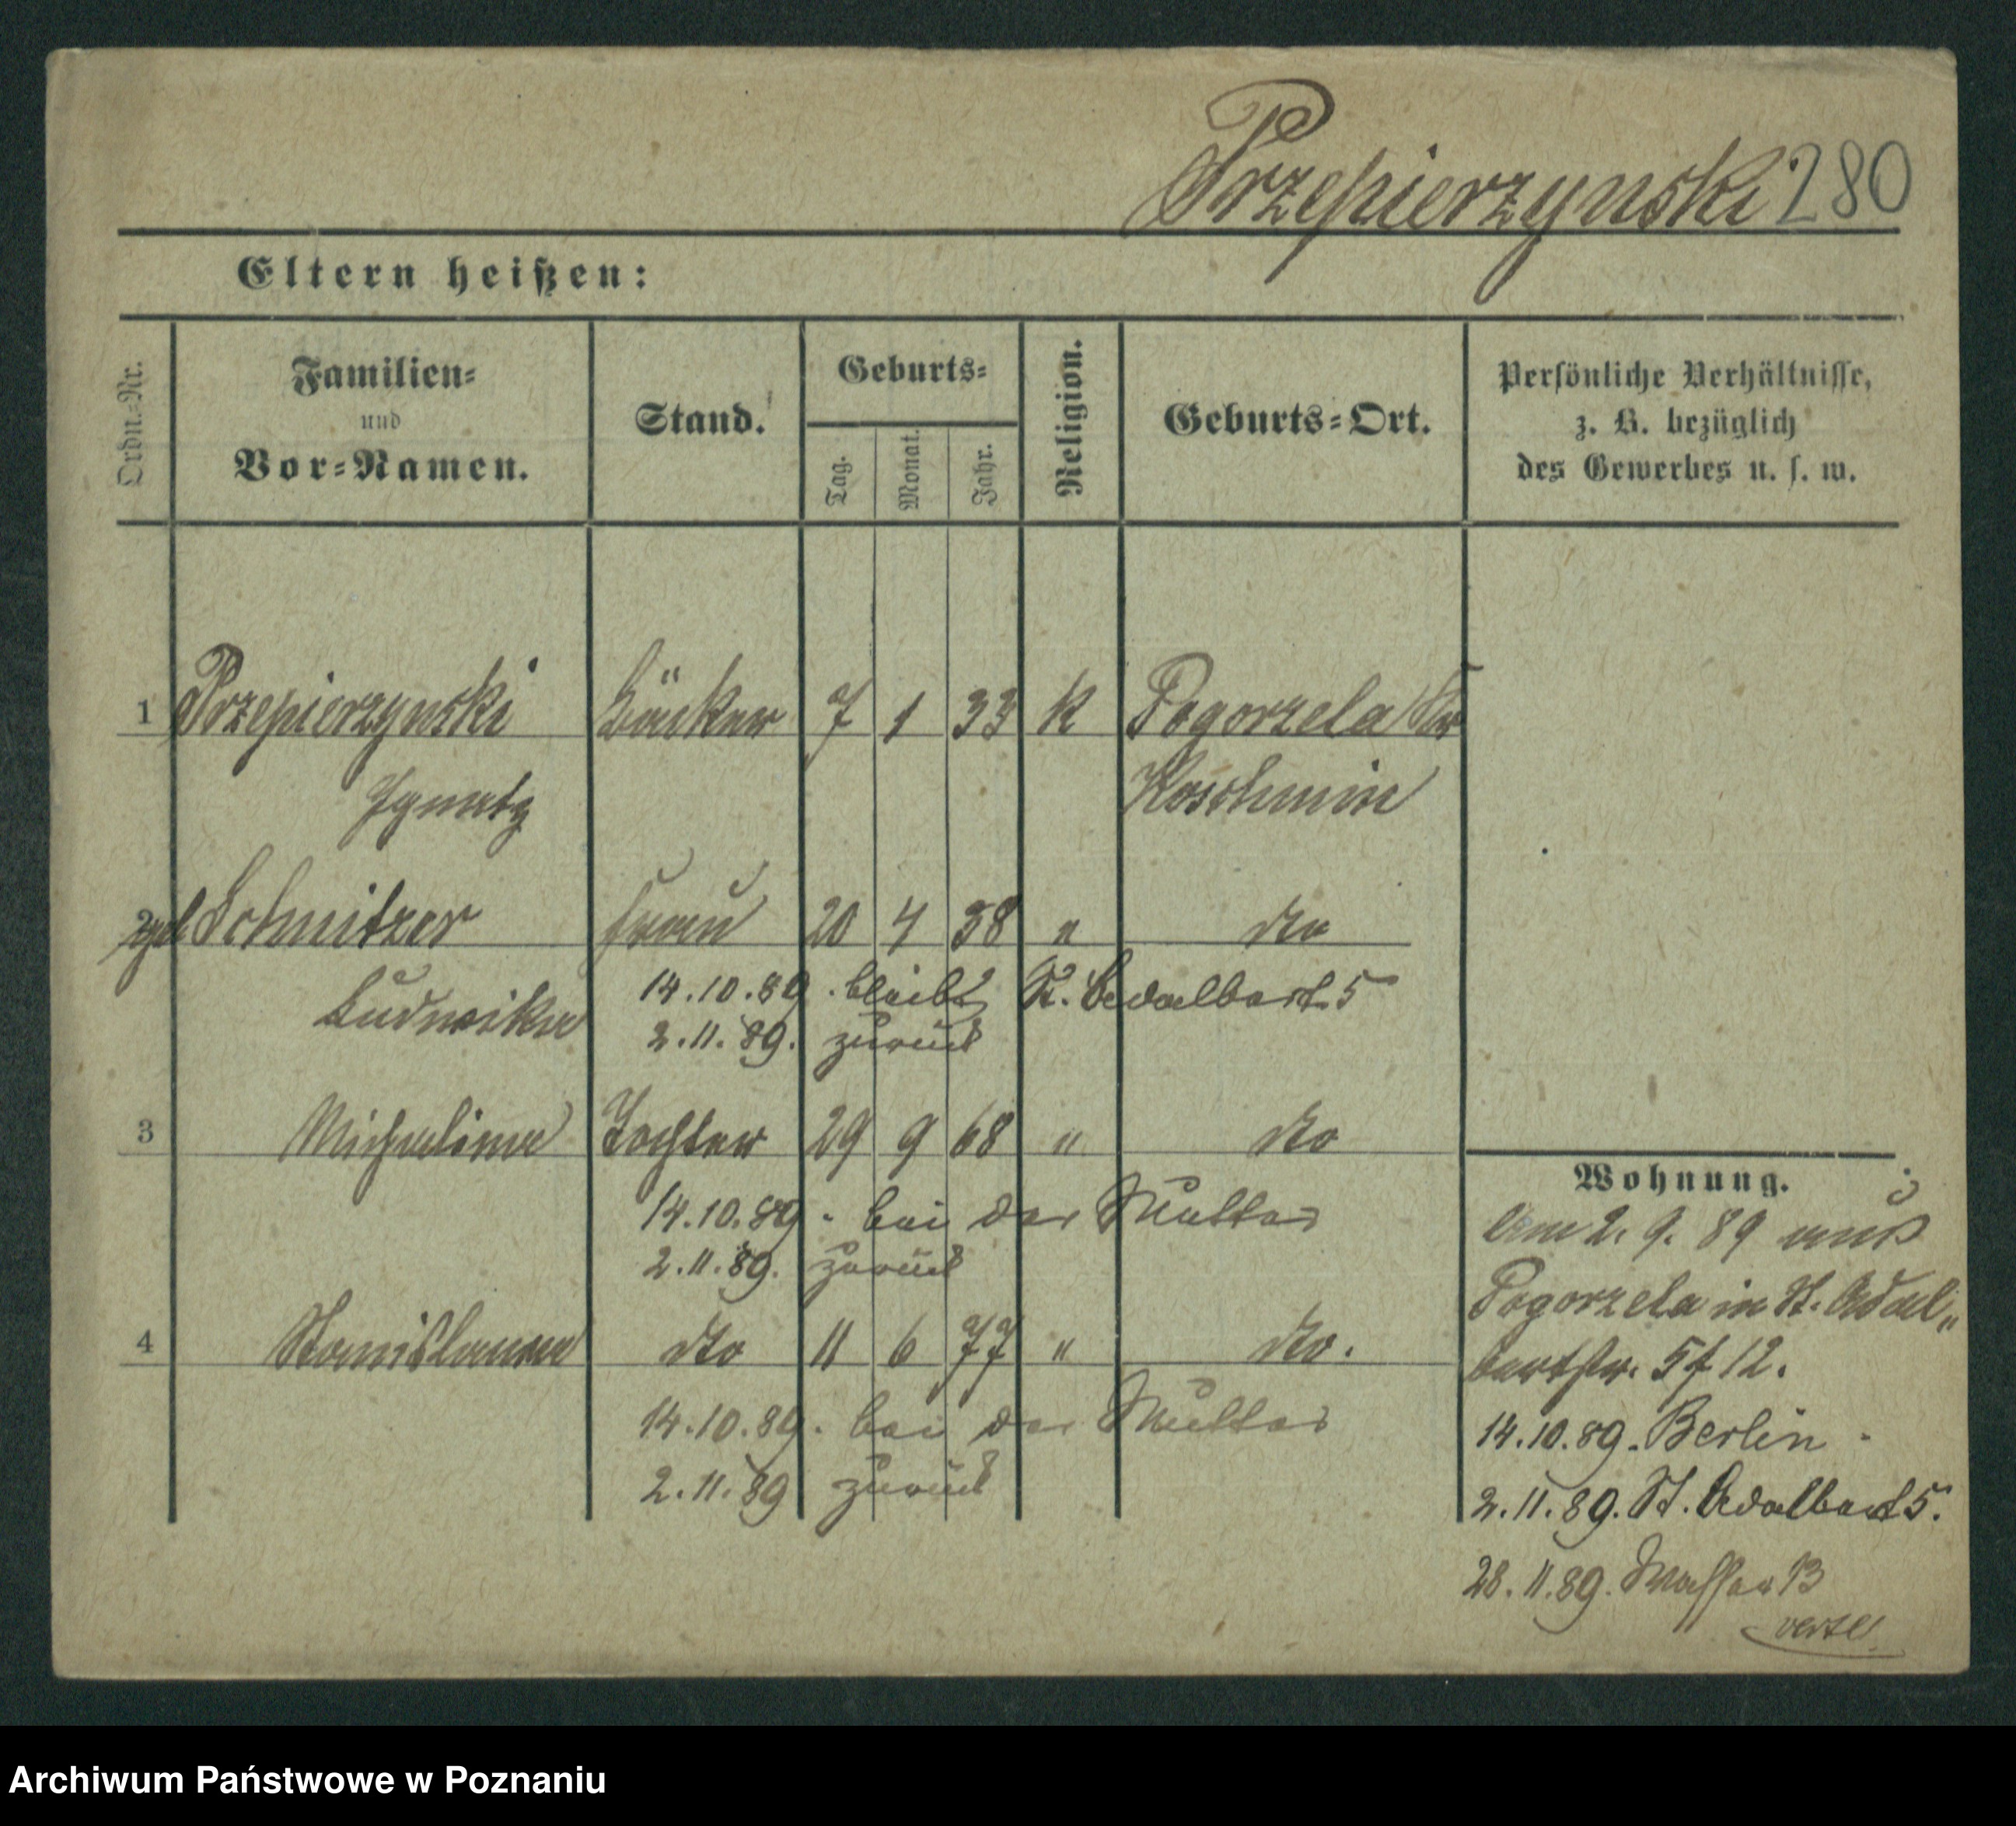 Przepierzynski 280
Eltern heißen:
Ordn.-Nr.
Familien-
und
Vor-Namen.
Stand.
Geburts-
Tag.
Monat.
Jahr.
Religion.
Geburts-Ort.
Persönliche Verhältnisse,
z. B. bezüglich
des Gewerbes u. s. w.
1 Przepierzynski Bäcker 7 1 33 K Pogorzela Kr
Ignatz Koschmin
2 geb Schnitzer Frau 20 4 38 " dto
Ludowika
14.10.89. bleibt St. Adalbert 5
2.11.89. zurück
3 Michalina Tochter 29 9 68 " dto
14.10.89. bei der Mutter
2.11.89. zurück
4 Stanislawa dto 11 6 77 " dto.
14.10.89. bei der Mutter
2.11.89 zurück
Wohnung.
Am 2. 9. 89 aus
Pogorzela in St. Adal„
bertstr. 5 f 12.
14.10.89. Berlin
2.11.89. St. Adalbert 5.
28.11.89. Wasser 13
verte!
Archiwum Państwowe w Poznaniu